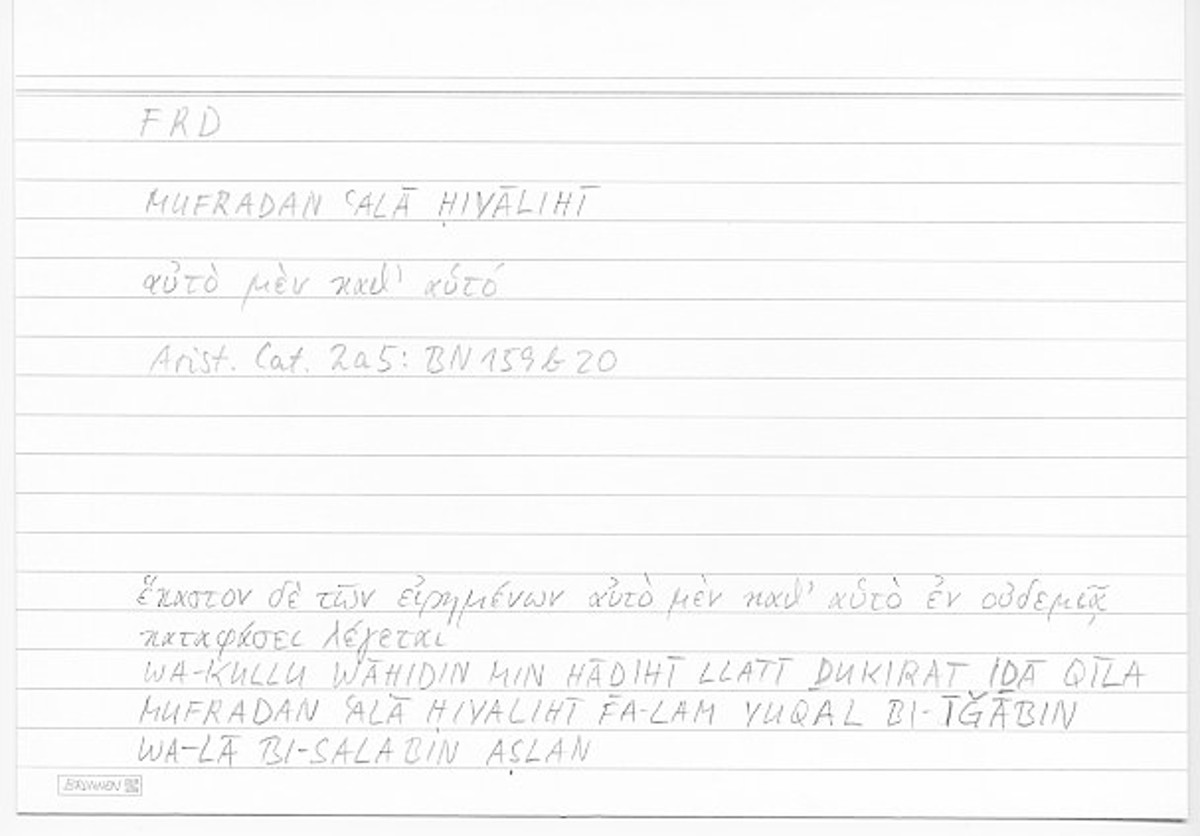 FRD
MUFRADAN ʿALĀ ḤIYĀLIHĪ
αὐτὸ μὲν καθ' αὑτό
Arist. Cat. 2a5: BN 159b20
ἕκαστον δὲ τῶν εἰρημένων αὐτὸ μὲν καθ' αὑτὸ ἐν οὐδεμιᾷ
καταφάσει λέγεται
WA-KULLU WĀHIDIN MIN HĀḎIHĪ LLATĪ ḎUKIRAT IḎĀ QĪLA
MUFRADAN ʿALĀ ḤIYALIHĪ FA-LAM YUQAL BI-ĪǦĀBIN
WA-LĀ BI-SALABIN AṢLAN
BRUNNEN